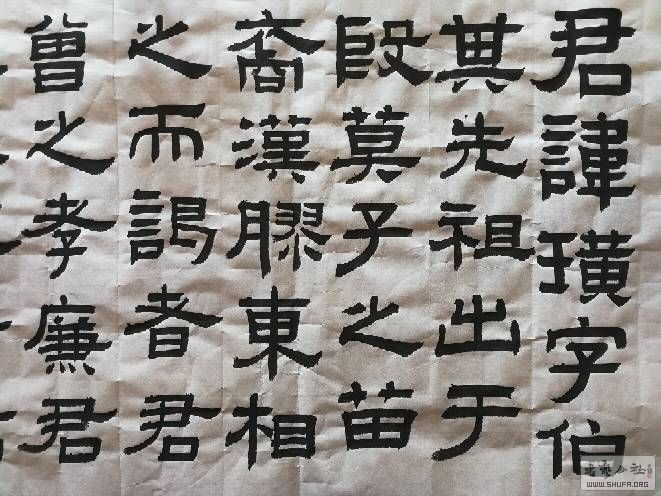 君諱璜字伯
其先祖出于
殷箕子之苗
裔漢膠東相
之而謁者君
曾之孝廉君
WWW.SHUFA.ORG